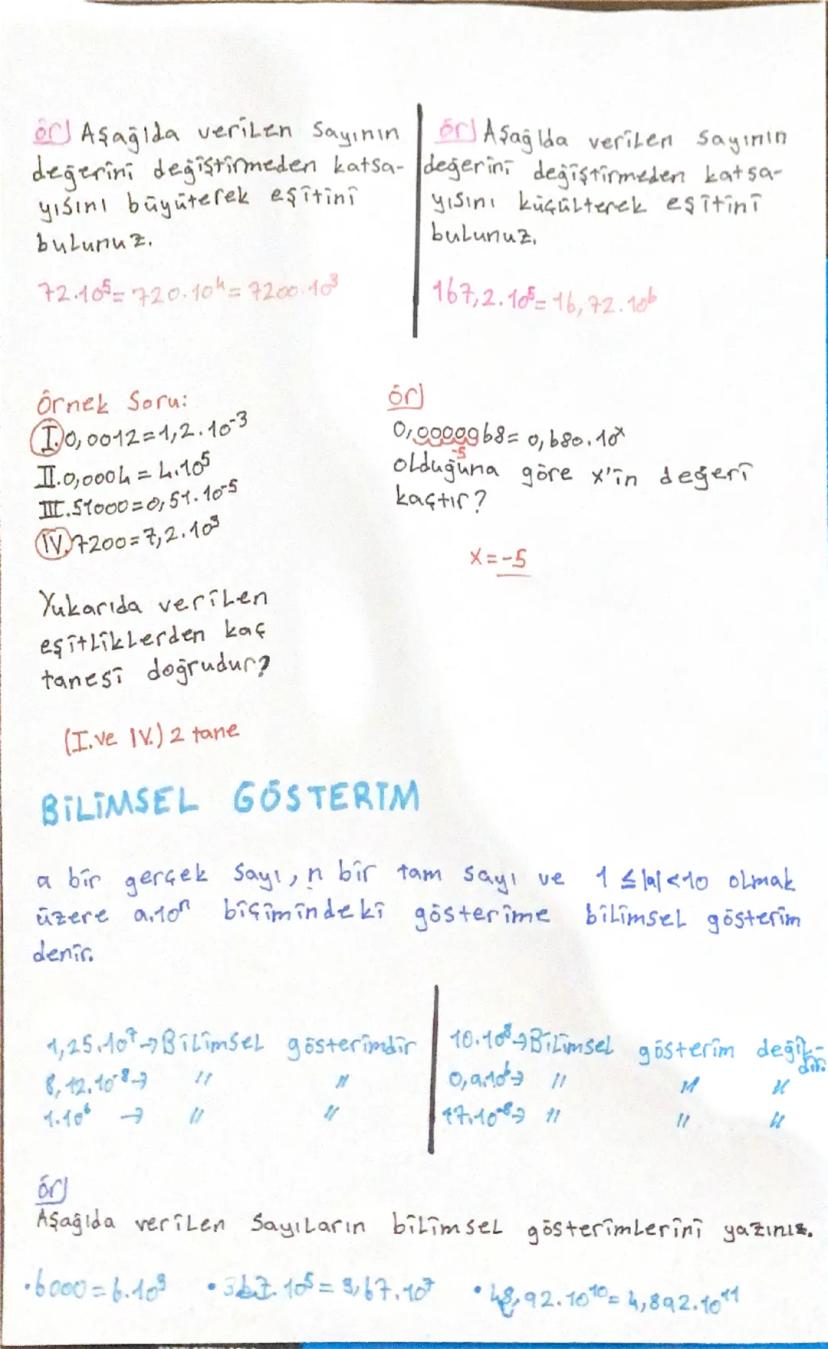 ör) Aşağıda verilen sayının
değerini değiştirmeden katsa-
yısını büyüterek eşitini
bulunuz.
72.10⁵= 720.10⁴= 7200.10³
ör) Aşağıda verilen sayının
değerini değiştirmeden katsa-
yısını küçülterek eşitini
bulunuz.
167,2.10⁵= 16,72.10⁶
Örnek Soru:
I.0,0012=1,2.10⁻³
II.0,0004 = 4.10⁵
III.51000=0,51.10⁻⁵
IV.7200=7,2.10³
Yukarıda verilen
eşitliklerden kaç
tanesi doğrudur?
(I.ve IV.) 2 tane
ör)
0,0000068= 0,680.10ˣ
-5
olduğuna göre x'in değeri
kaçtır?
x=-5
BİLİMSEL GÖSTERİM
a bir gerçek sayı, n bir tam sayı ve 1 ≤|a|<10 olmak
üzere a.10ⁿ biçimindeki gösterime bilimsel gösterim
denir.
1,25.10⁷→Bilimsel gösterimdir
8,12.10⁻⁸→ " "
1.10⁶ → " "
10.10⁸→Bilimsel gösterim değil-
dir.
0,9.10⁶→ " " "
17.10⁻⁸→ " " "
ör)
Aşağıda verilen sayıların bilimsel gösterimlerini yazınız.
•6000=6.10³ •367.10⁵=3,67.10⁷ •48,92.10¹⁰=4,892.10¹¹